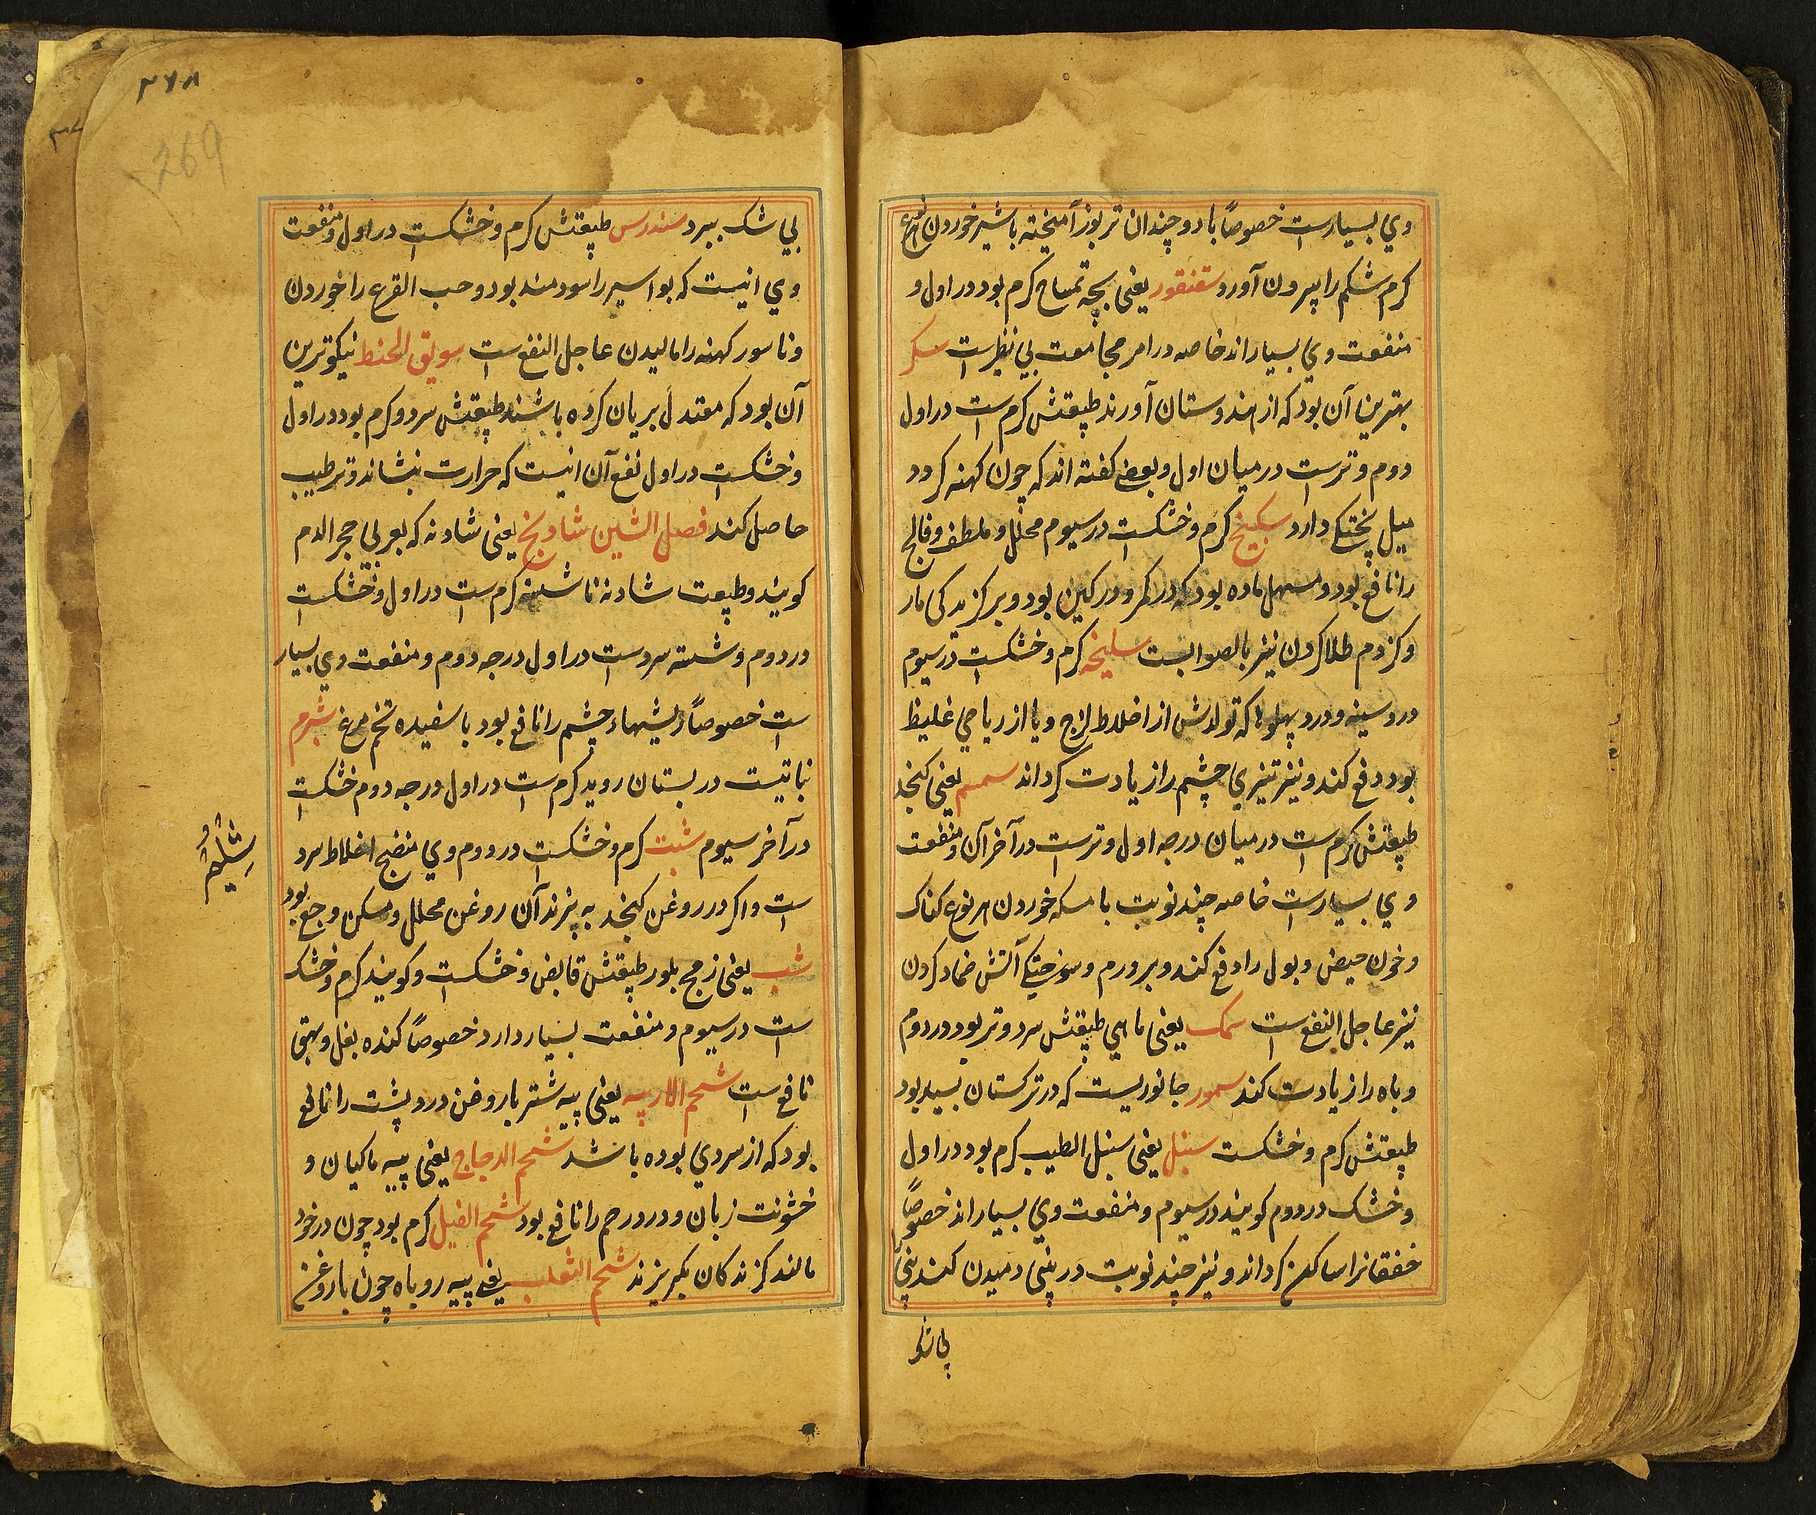 وي بسیارست خصوصاً با دو چندان تربوز آمیخته با شیر خوردن انواع
کرم شکم را بیرون آورد سقنقور یعنی بچه تمساح کرم بود در اول و
منفعت وي بسیار اند خاصه در امر مجامعت بي نظیرست سکر
بهترین آن بود که از هندوستان آورند طبیعتش کرم ست در اول
دوم و ترست در میان اول و بعضی کفته اند که چون کهنه کردد
میل بخشکي دارد سکبینج کرم و خشکست در سیوم محلل و ملطف و فالج
را نافع بود و مسهل ماده بود که در کمر و ورکین بود و بر کزیدکی مار
و کزدم طلا کردن نیز بالصوابست سلیخه کرم و خشکست در سیوم
درد سینه و درد پهلو ها که تولدش از اخلاط لزج و یا از ریاحي غلیظ
بود دفع کند و نیز تیزي چشم را زیادت کرداند سمسم یعنی کنجد
طبیعتش کرم ست در میان درجه اول و ترست در آخر آن و منفعت
وي بسیارست خاصه چند نوبت با مسکه خوردن هر نوع کناک
و خون حیض و بول را دفع کند و بر ورم و سوختکي آتش ضماد کردن
نیز عاجل النفع ست سمک یعنی ماهي طبیعتش سرد و تر بود در دوم
و باه را زیادت کند سمور جانوریست که در ترکستان بسیار بود
طبیعتش کرم و خشکست سنبل یعنی سنبل الطیب کرم بود در اول
و خشک در دوم کویند در سیوم و منفعت وي بسیار اند خصوصاً
خفقانرا ساکن کرداند و نیز چند نوبت در بینی دمیدن کند بینی را
بی شک
۲۶۸
269
بي شک ببرد سندرس طبیعتش کرم و خشکست در اول و منفعت
وي اینست که بواسیر را سودمند بود و حب القرع را خوردن
و ناسور کهنه را مالیدن عاجل النفع ست سویق الحنط نیکوترین
آن بود که معتدل بریان کرده باشند طبیعتش سرد و کرم بود در اول
و خشکست در اول نفع آن اینست که حرارت بنشاند و ترطیب
حاصل کند فصل الشین شادنج یعنی شادنه که بعربي حجر الدم
کویند و طبیعت شادنه ناشسته کرم ست در اول و خشکست
در دوم و شسته سردست در اول درجه دوم و منفعت وي بسیار
ست خصوصاً ریشهاء چشم را نافع بود با سفیده تخم مرغ شبرم
نباتیست در بستان روید کرم ست در اول درجه دوم خشکست
در آخر سیوم شبت کرم و خشکست در دوم وي منضج اخلاط سرد
ست و اکر در روغن کنجد به پزند آن روغن محلل و مسکن وجع بود
شب یعنی زمج بلور طبیعتش قابض و خشکست و کویند کرم و خشک
ست در سیوم و منفعت بسیار دارد خصوصاً کنده بغل و بهق
نافع ست شحم الاربیه یعنی پیه شتر با روغن درد پشت را نافع
بود که از سردي بوده باشد شحم الدجاج یعنی پیه ماکیان و
خشونت زبان و درد رحم را نافع بود شحم الفیل کرم بود چون در خود
مالند کزندکان بکریزند شحم الثعلب یعنی پیه روباه چون با روغن